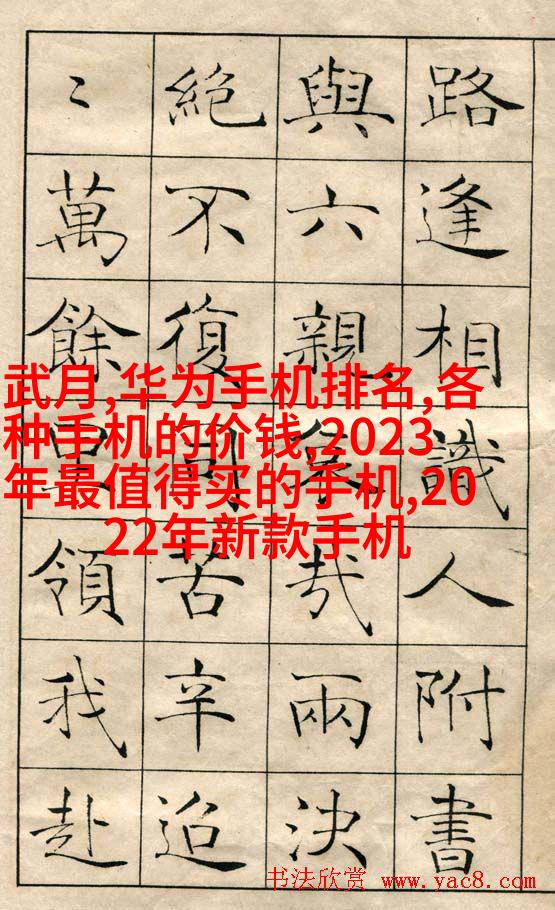 路逢相識人附書
與六親哀哉兩決
絶不復同苦辛迢
〻萬餘里領我赴
武月,华为手机排名,各
种手机的价钱,2023
年最值得买的手机,20
22年新款手机
书法欣赏 www.yac8.com